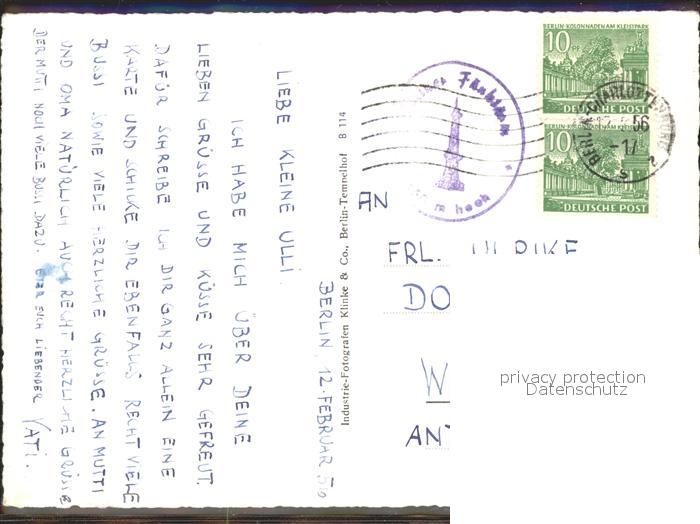 BERLIN, 12. FEBRUAR 56
LIEBE KLEINE ULLI
ICH HABE MICH ÜBER DEINE
LIEBEN GRÜSSE UND KÜSSE SEHR GEFREUT.
DAFÜR SCHREIBE ICH DIR GANZ ALLEIN EINE
KARTE UND SCHICKE DIR EBENFALLS RECHT VIELE
BUSSI SOWIE VIELE HERZLICHE GRÜSSE. AN MUTTI
UND OMA NATÜRLICH AUCH RECHT HERZLICHE GRÜSSE
DER MUTI NOCH VIELE BUSSI DAZU. EUER EUCH LIEBENDER VATI.
Industrie-Fotografen Klinke & Co., Berlin-Tempelhof B 114
Funkturm
m hoch
BERLIN-KOLONNADEN AM KLEISTPARK
10 PF
DEUTSCHE POST
BERLIN-KOLONNADEN AM
10
DEUTSCHE POST
BERLIN-CHARLOTTENBURG
56
-17
2
AN
FRL.
DO
W
AN
privacy protection
Datenschutz